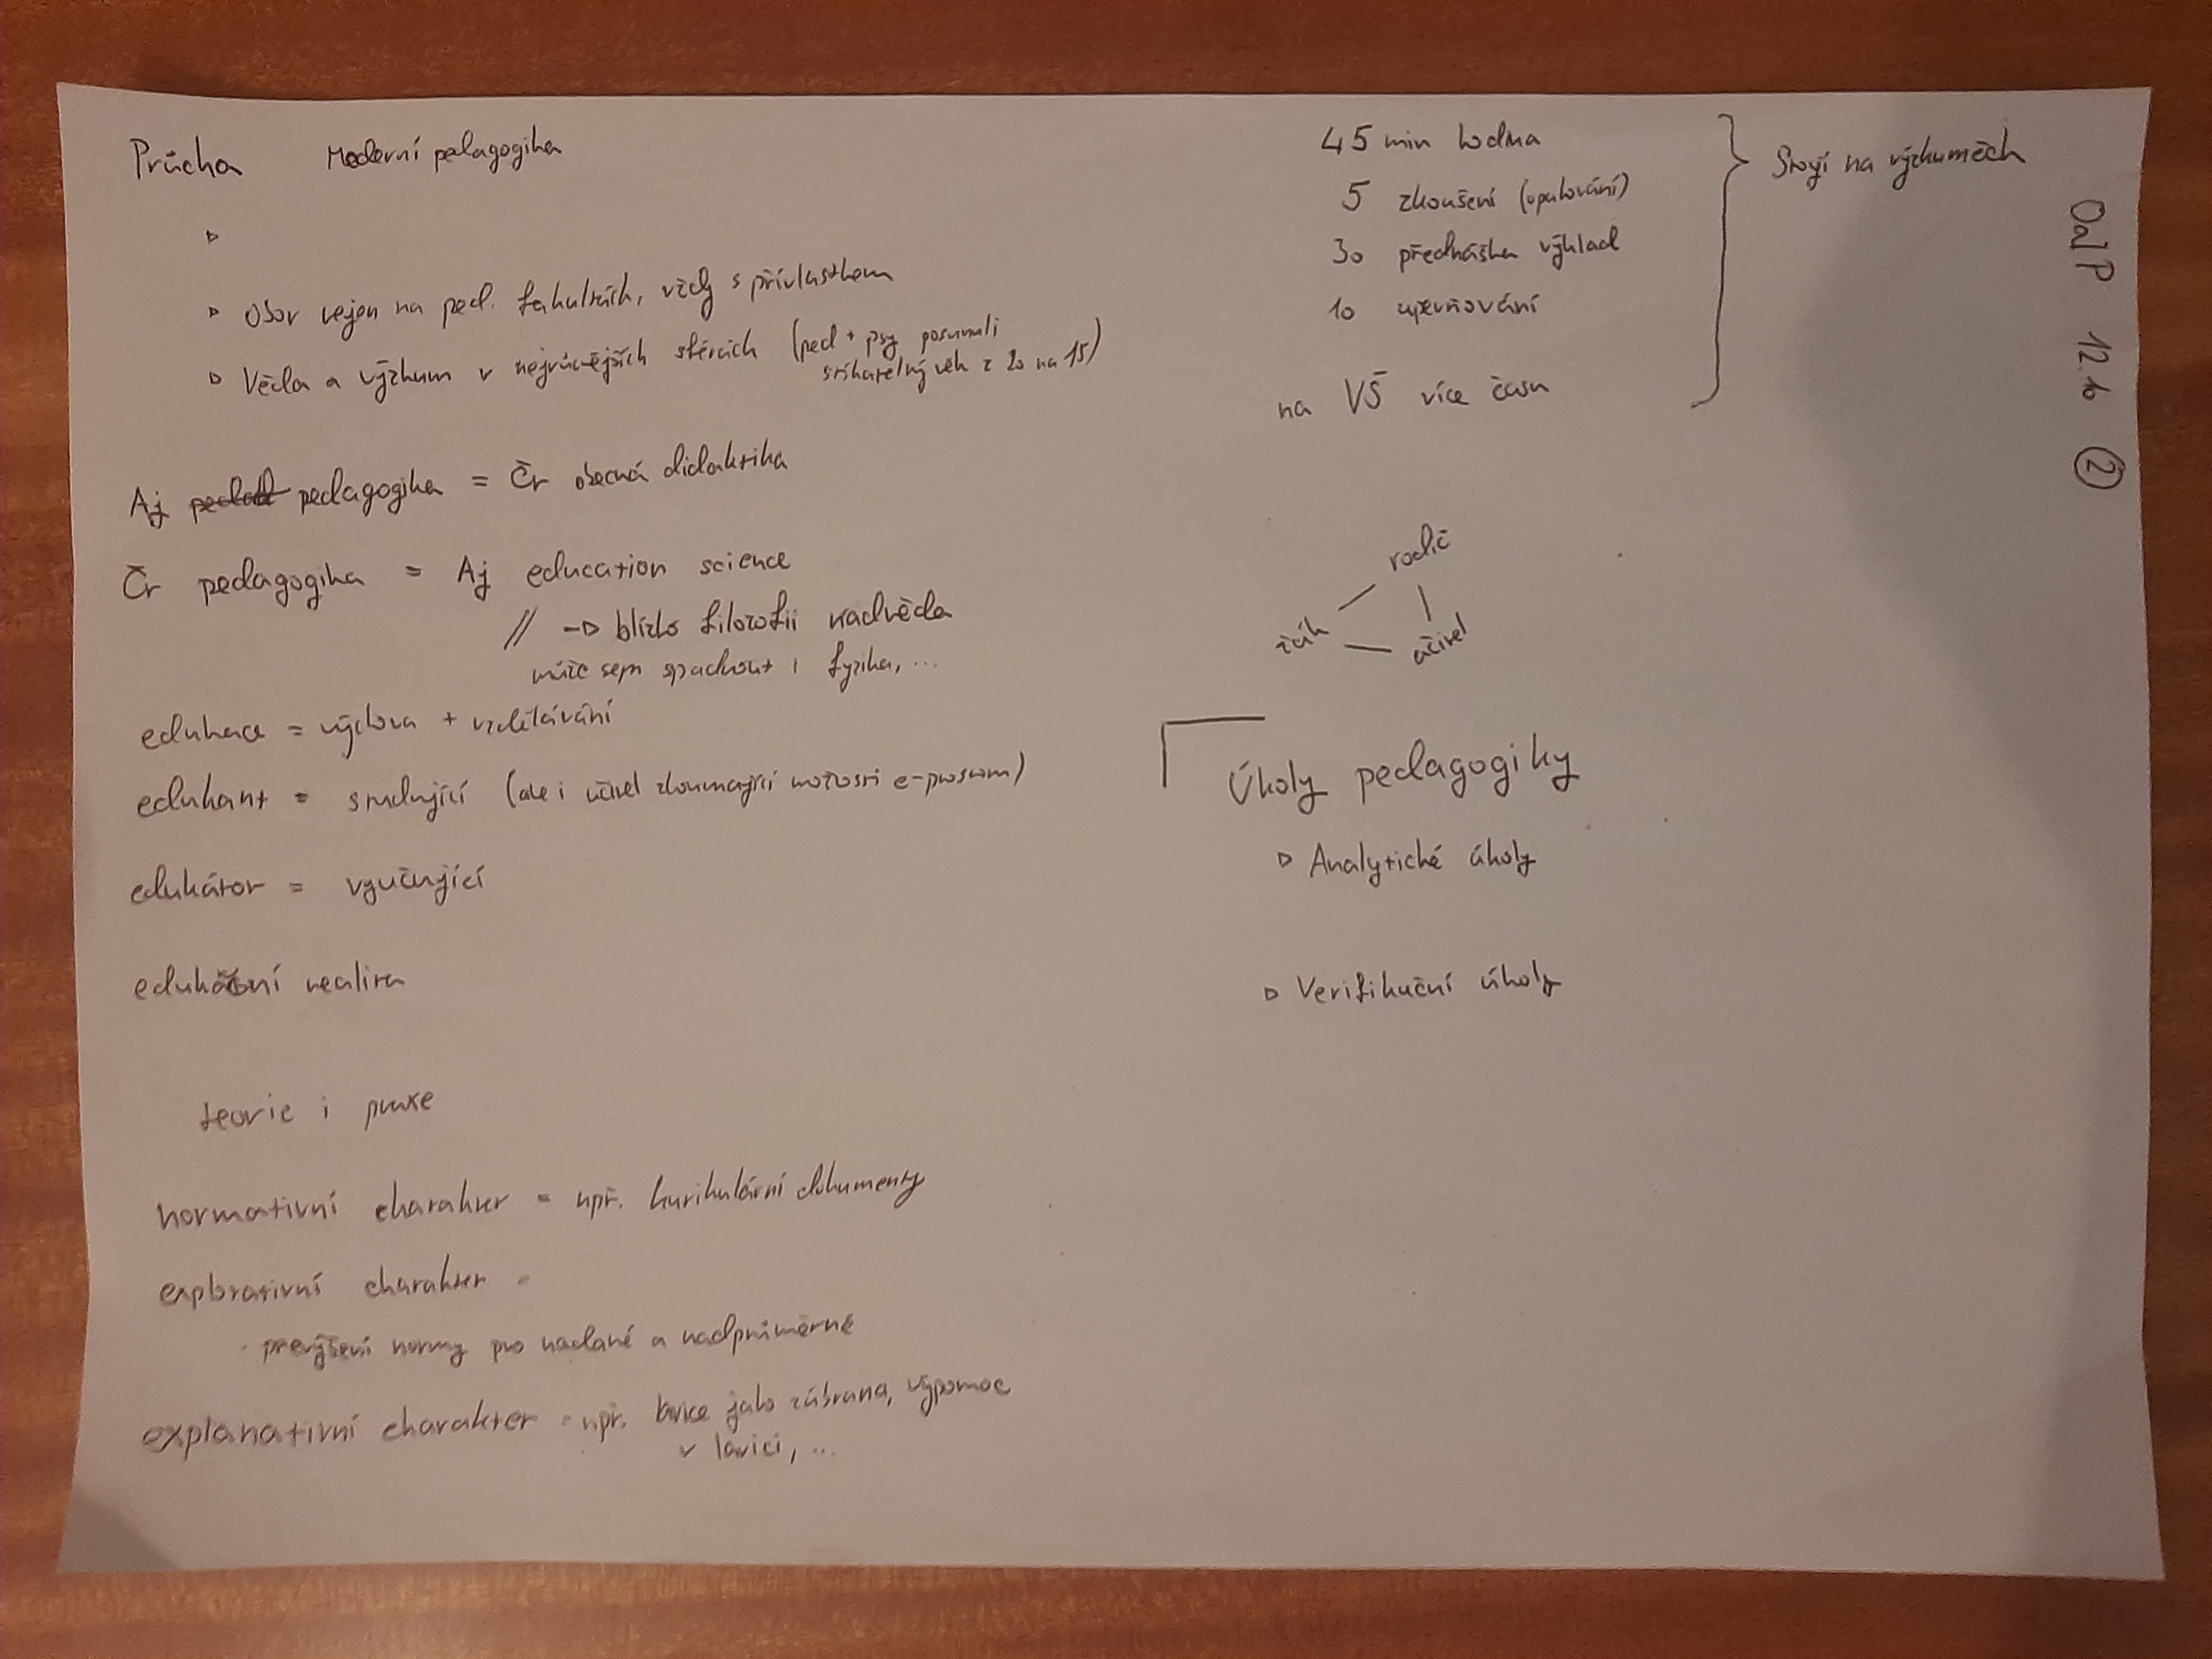 Průcha Moderní pedagogika
▹
▹ Obor nejen na ped. fakultách, vždy s přívlastkem
▹ Věda a výzkum v nejrůznějších sférách (ped + psy posunuli
stíhatelný věk z 20 na 15)
Aj pedagogika = Čr obecná didaktika
Čr pedagogika = Aj education science
// → blízko filozofii nadvěda
může sem spadnout i fyzika, ...
edukace = výchova + vzdělávání
edukant = studující (ale i učitel zkoumající možnosti e-prostorem)
edukátor = vyučující
edukační realita
teorie i praxe
normativní charakter = např. kurikulární dokumenty
explorativní charakter =
· převýšení normy pro nadané a nadprůměrné
explanativní charakter = např. lavice jako zábrana, výpomoc
v lavici, ...
45 min hodina
5 zkoušení (opakování)
30 přednáška výklad
10 upevňování
na VŠ více času
Stojí na výzkumech
rodič
žák
učitel
Úkoly pedagogiky
▹ Analytické úkoly
▹ Verifikační úkoly
OaIP 12.10 ②